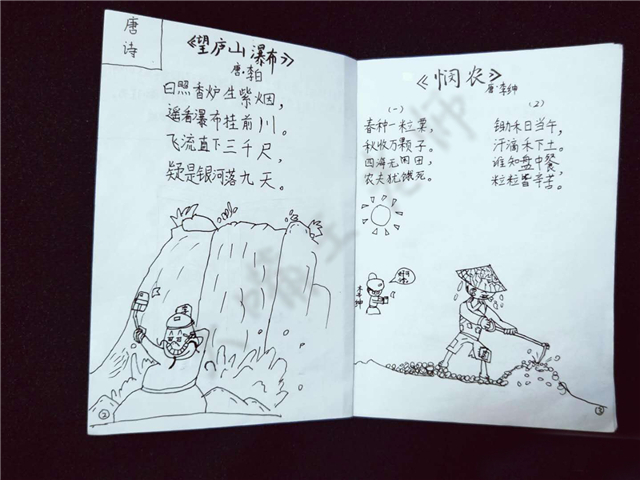 唐诗
《望庐山瀑布》
唐·李白
日照香炉生紫烟，
遥看瀑布挂前川。
飞流直下三千尺，
疑是银河落九天。
②
《悯农》
唐·李绅
(一)
春种一粒粟，
秋收万颗子。
四海无闲田，
农夫犹饿死。
(2)
锄禾日当午，
汗滴禾下土。
谁知盘中餐，
粒粒皆辛苦。
李绅
③